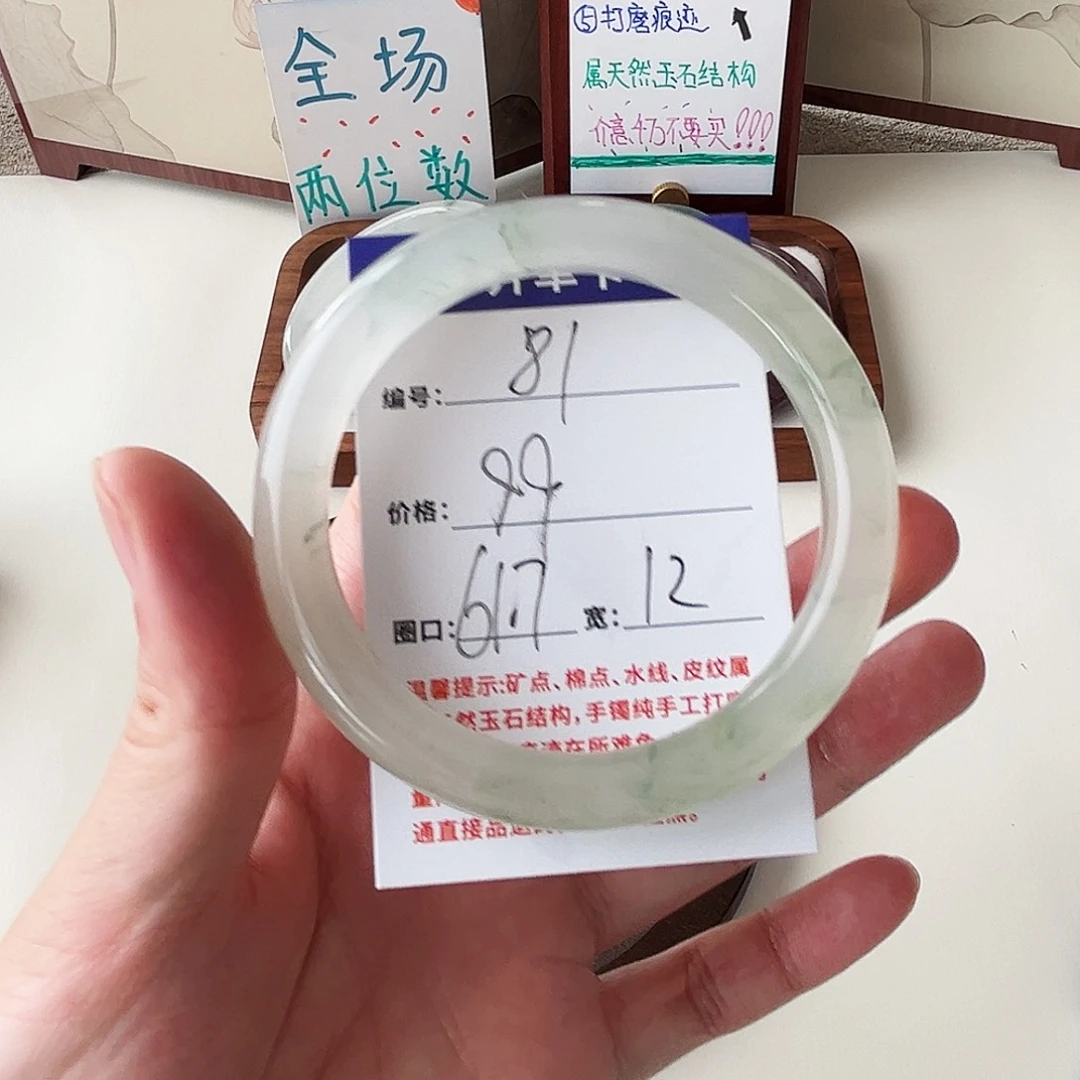 全场
两位数
⑤打磨痕迹
属天然玉石结构
介意切不要买!!!
编号: 81
价格: 99
圈口: 61.7 宽: 12
温馨提示:矿点、棉点、水线、皮纹属
然玉石结构,手镯纯手工打
痕迹在所难免
通直接品